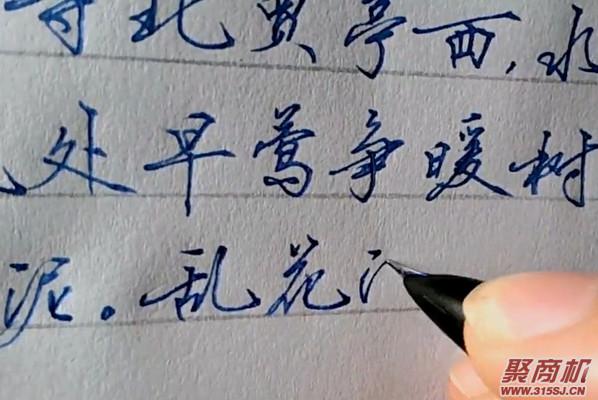 寺北贾亭西，水
处早莺争暖树
泥。乱花
聚商机
www.315SJ.CN